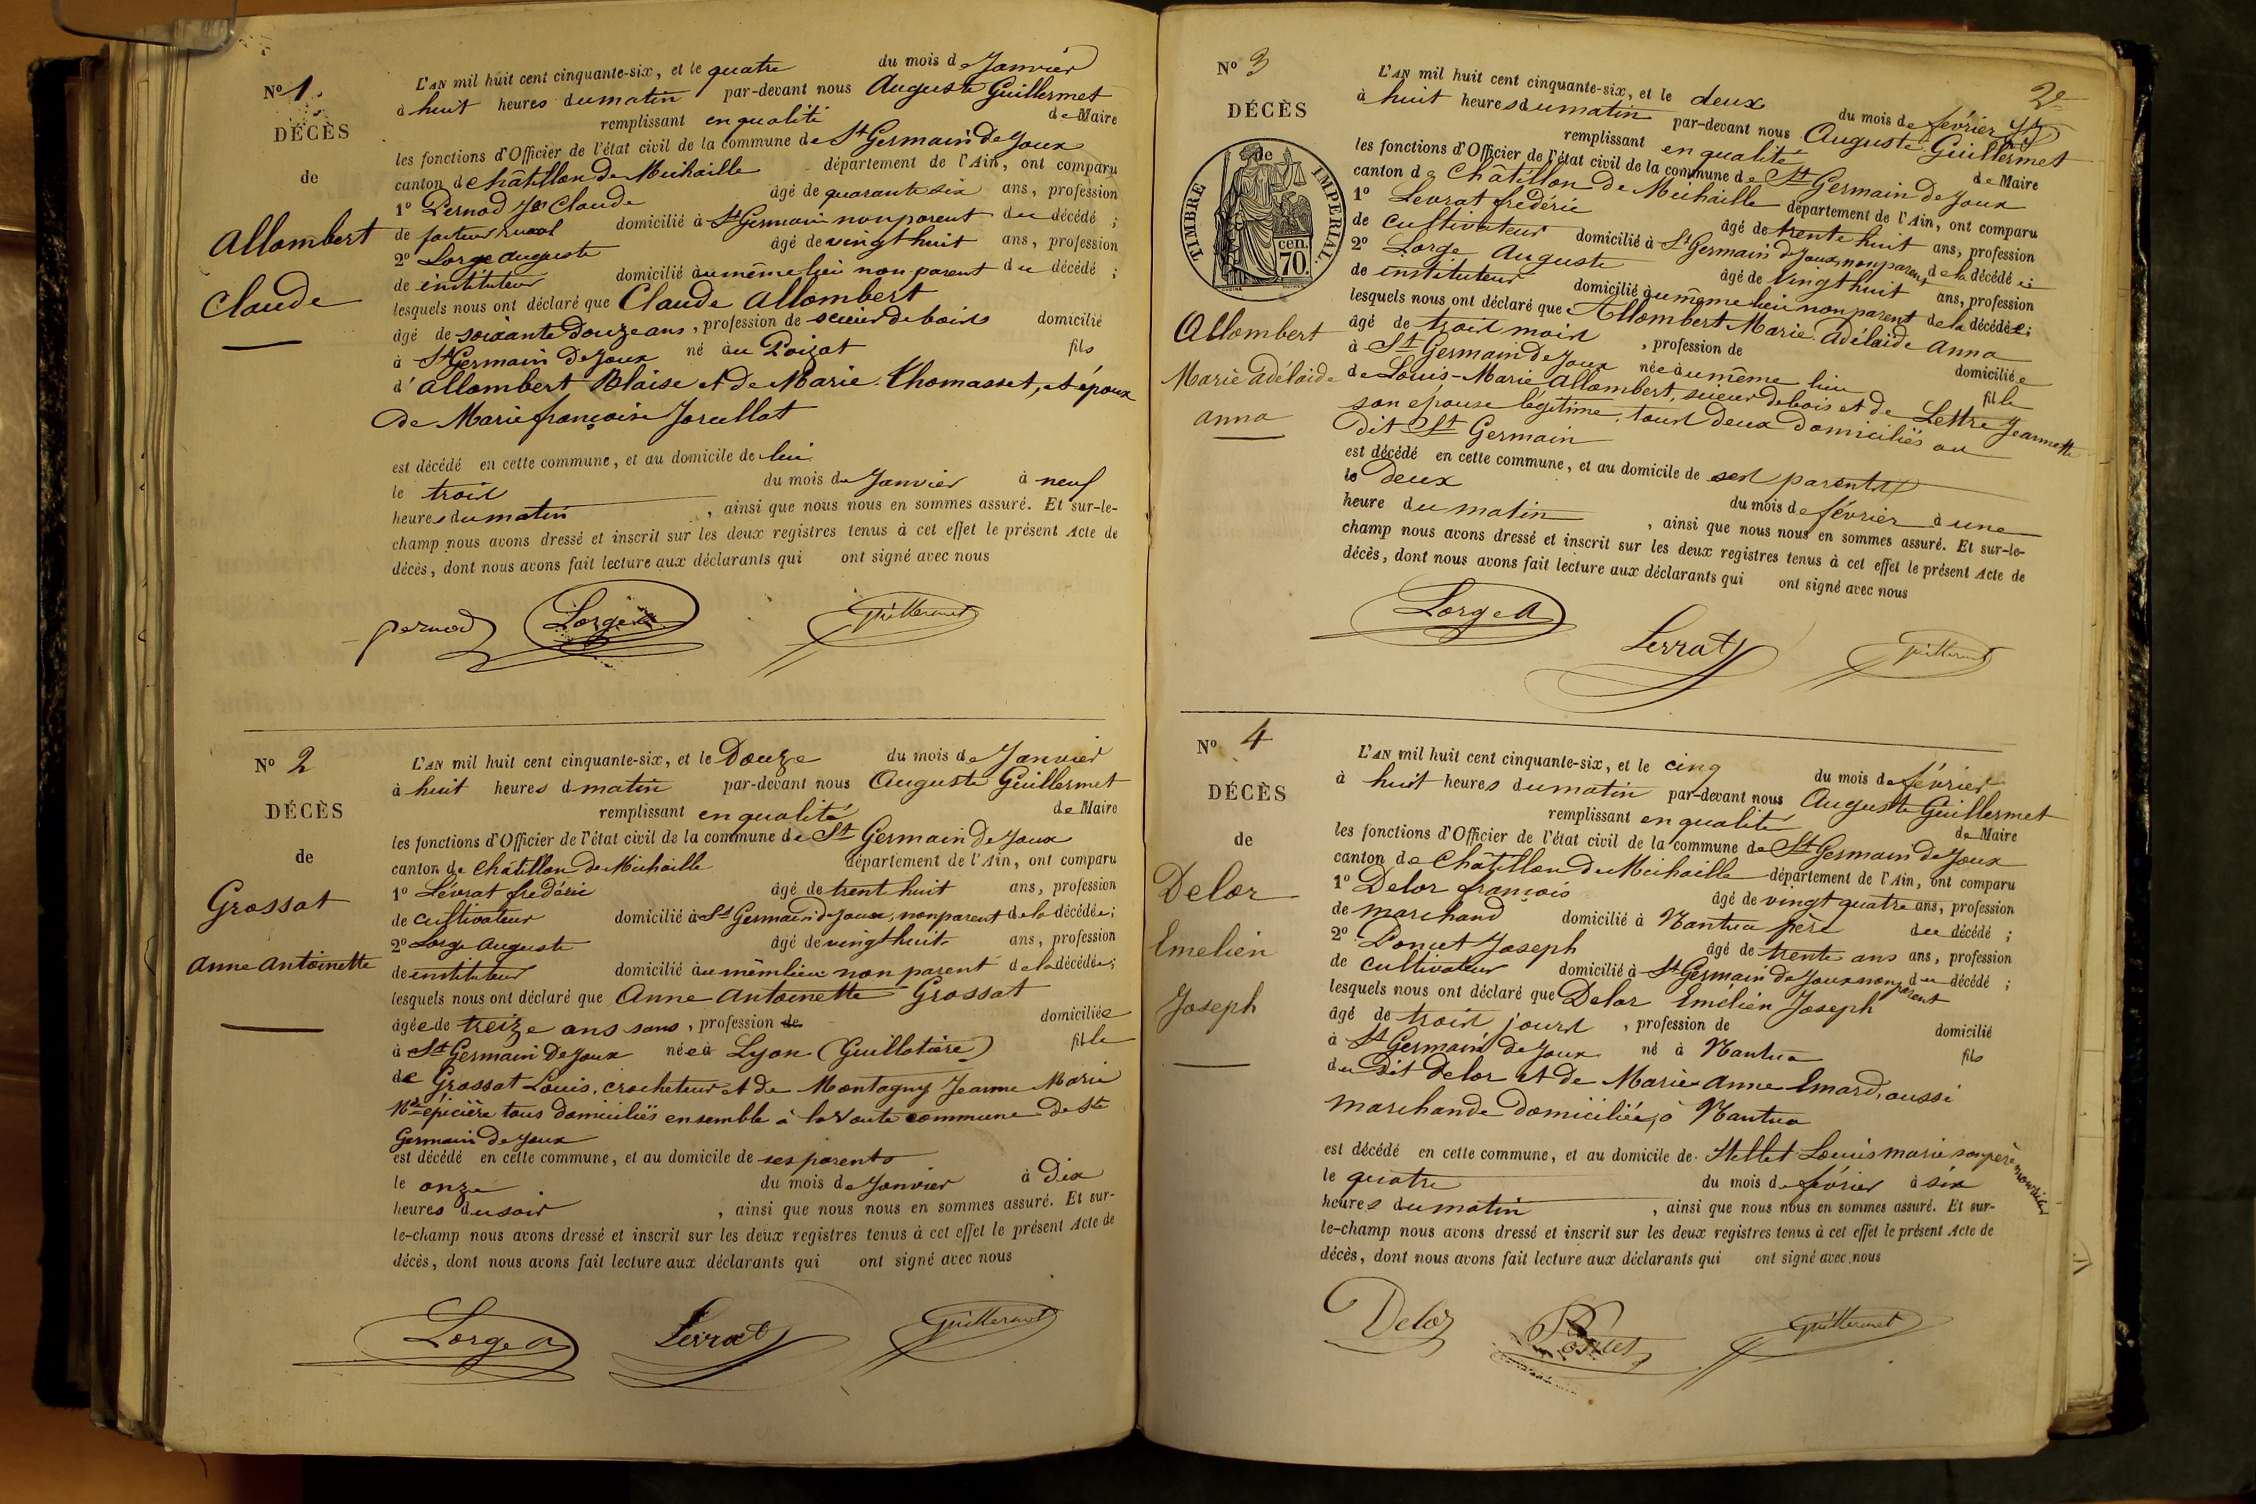 N° 1.
DÉCÈS
de
Allombert
Claude
L'AN mil huit cent cinquante-six, et le quatre du mois de Janvier
à huit heures du matin par-devant nous Auguste Guillermet
remplissant en qualité de Maire
les fonctions d'Officier de l'état civil de la commune de St Germain de Joux
canton de Châtillon de Michaille département de l'Ain, ont comparu
1° Pernod Claude âgé de quarante six ans, profession
de facteur rural domicilié à St Germain non parent du décédé ;
2° Lorge auguste âgé de vingt huit ans, profession
de instituteur domicilié au même lieu non parent du décédé ;
lesquels nous ont déclaré que Claude Allombert
âgé de soixante douze ans, profession de scieur de bois domicilié
à St Germain de Joux né au Poizat fils
d'allombert Blaise et de Marie Thomasset, et époux
de Marie françoise Jorcellat
est décédé en cette commune, et au domicile de lui
le trois du mois de Janvier à neuf
heures du matin, ainsi que nous nous en sommes assuré. Et sur-le-
champ nous avons dressé et inscrit sur les deux registres tenus à cet effet le présent Acte de
décès, dont nous avons fait lecture aux déclarants qui ont signé avec nous
pernod Lorge a Guillermet
N° 2
DÉCÈS
de
Grossat
Anne Antoinette
L'AN mil huit cent cinquante-six, et le Douze du mois de Janvier
à huit heures d matin par-devant nous Auguste Guillermet
remplissant en qualité de Maire
les fonctions d'Officier de l'état civil de la commune de St Germain de Joux
canton de Châtillon de Michaille département de l'Ain, ont comparu
1° Lévrat frédéric âgé de trente huit ans, profession
de cultivateur domicilié à St Germain de Joux, non parent de la décédée ;
2° Lorge Auguste âgé de vingt huit ans, profession
de instituteur domicilié au même lieu non parent de la décédée ;
lesquels nous ont déclaré que Anne Antoinette Grossat
âgée de treize ans sans, profession de domiciliée
à St Germain de Joux née à Lyon (Guillotière) fille
de Grossat Louis, crocheteur et de Montagny Jeanne Marie
Mde épicière tous domiciliés ensemble à la Voute commune de St
Germain de Joux
est décédé en cette commune, et au domicile de ses parents
le onze du mois de Janvier à Dix
heures du soir, ainsi que nous nous en sommes assuré. Et sur-
le-champ nous avons dressé et inscrit sur les deux registres tenus à cet effet le présent Acte de
décès, dont nous avons fait lecture aux déclarants qui ont signé avec nous
Lorge a Levrat Guillermet
2e
N° 3
DÉCÈS
de
TIMBRE IMPERIAL.
cen.
70.
Allombert
Marie Adélaide
anna
L'AN mil huit cent cinquante-six, et le deux du mois de février
à huit heures du matin par-devant nous Auguste Guillermet
remplissant en qualité de Maire
les fonctions d'Officier de l'état civil de la commune de St Germain de Joux
canton de Châtillon de Michaille département de l'Ain, ont comparu
1° Levrat frédéric âgé de trente huit ans, profession
de cultivateur domicilié à St Germain de Joux, non parent de la décédé
2° Lorge Auguste âgé de vingt huit ans, profession
de instituteur domicilié au même lieu non parent de la décédée ;
lesquels nous ont déclaré que Allombert Marie Adélaide Anna
âgé de trois mois, profession de domiciliée
à St Germain de Joux née au même lieu fille
de Louis-Marie Allombert, scieur de bois et de Lettre Jeannette
son epouse légitime, tous deux domiciliés au
dit St Germain
est décédé en cette commune, et au domicile de ses parents
le Deux du mois de février à une
heure du matin, ainsi que nous nous en sommes assuré. Et sur-le-
champ nous avons dressé et inscrit sur les deux registres tenus à cet effet le présent Acte de
décès, dont nous avons fait lecture aux déclarants qui ont signé avec nous
Lorge A Levrat Guillermet
N° 4
DÉCÈS
de
Delor
Emelien
Joseph
L'AN mil huit cent cinquante-six, et le cinq du mois de février
à huit heures du matin par-devant nous Auguste Guillermet
remplissant en qualité de Maire
les fonctions d'Officier de l'état civil de la commune de St Germain de Joux
canton de Châtillon de Michaille département de l'Ain, ont comparu
1° Delor françois âgé de vingt quatre ans, profession
de marchand domicilié à Nantua père du décédé ;
2° Poncet Joseph âgé de trente ans ans, profession
de cultivateur domicilié à St Germain de Joux non parent du décédé ;
lesquels nous ont déclaré que Delor Emélien Joseph
âgé de trois jours, profession de domicilié
à St Germain de Joux né à Nantua fils
du dit Delor et de Marie Anne Emard, aussi
marchande domiciliée, à Nantua
est décédé en cette commune, et au domicile de Louis marie son père nourricier
le quatre du mois de février à six
heures du matin, ainsi que nous nous en sommes assuré. Et sur-
le-champ nous avons dressé et inscrit sur les deux registres tenus à cet effet le présent Acte de
décès, dont nous avons fait lecture aux déclarants qui ont signé avec nous
Delor Poncet Guillermet